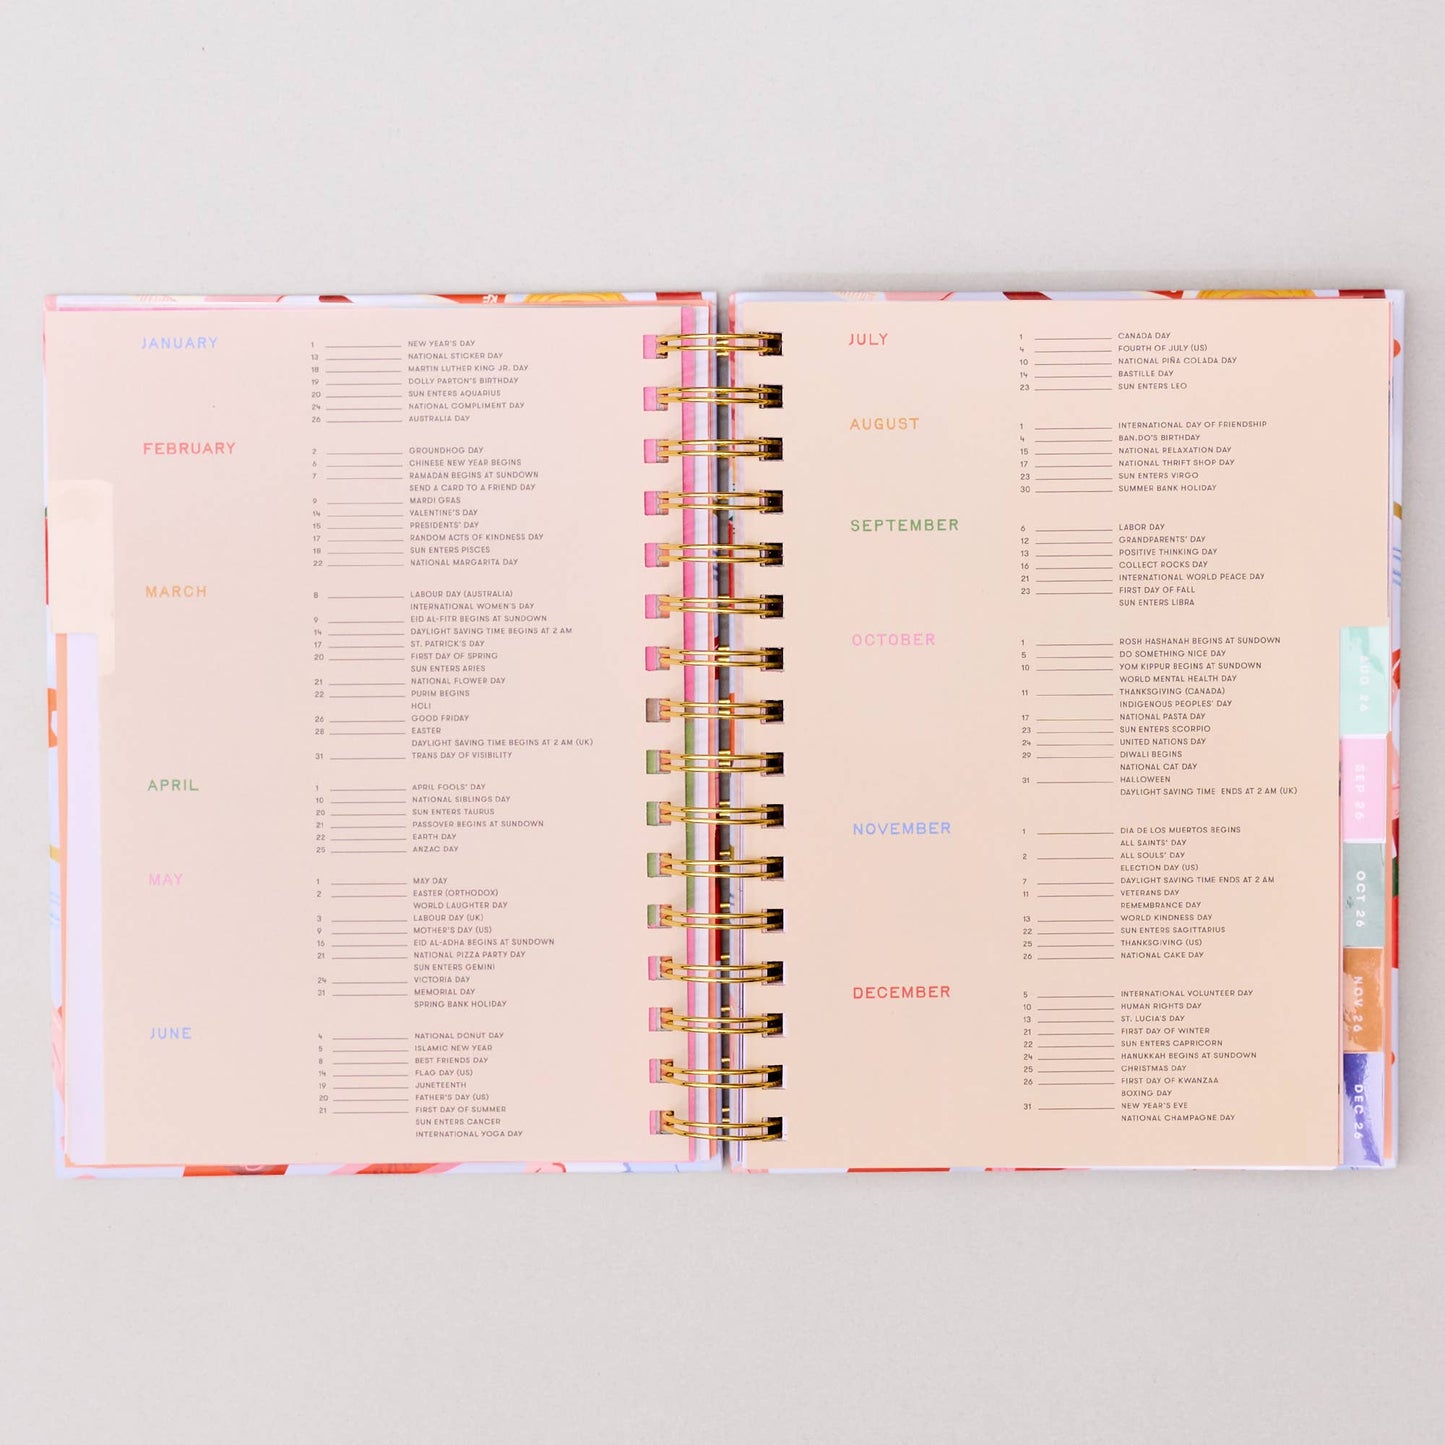 JANUARY
1 NEW YEAR'S DAY
13 NATIONAL STICKER DAY
18 MARTIN LUTHER KING JR. DAY
19 DOLLY PARTON'S BIRTHDAY
20 SUN ENTERS AQUARIUS
24 NATIONAL COMPLIMENT DAY
26 AUSTRALIA DAY
FEBRUARY
2 GROUNDHOG DAY
6 CHINESE NEW YEAR BEGINS
7 RAMADAN BEGINS AT SUNDOWN
SEND A CARD TO A FRIEND DAY
9 MARDI GRAS
14 VALENTINE'S DAY
15 PRESIDENTS' DAY
17 RANDOM ACTS OF KINDNESS DAY
18 SUN ENTERS PISCES
22 NATIONAL MARGARITA DAY
MARCH
8 LABOUR DAY (AUSTRALIA)
INTERNATIONAL WOMEN'S DAY
9 EID AL-FITR BEGINS AT SUNDOWN
14 DAYLIGHT SAVING TIME BEGINS AT 2 AM
17 ST. PATRICK'S DAY
20 FIRST DAY OF SPRING
SUN ENTERS ARIES
21 NATIONAL FLOWER DAY
22 PURIM BEGINS
HOLI
26 GOOD FRIDAY
28 EASTER
DAYLIGHT SAVING TIME BEGINS AT 2 AM (UK)
31 TRANS DAY OF VISIBILITY
APRIL
1 APRIL FOOLS' DAY
10 NATIONAL SIBLINGS DAY
20 SUN ENTERS TAURUS
21 PASSOVER BEGINS AT SUNDOWN
22 EARTH DAY
25 ANZAC DAY
MAY
1 MAY DAY
2 EASTER (ORTHODOX)
WORLD LAUGHTER DAY
3 LABOUR DAY (UK)
9 MOTHER'S DAY (US)
16 EID AL-ADHA BEGINS AT SUNDOWN
21 NATIONAL PIZZA PARTY DAY
SUN ENTERS GEMINI
24 VICTORIA DAY
31 MEMORIAL DAY
SPRING BANK HOLIDAY
JUNE
4 NATIONAL DONUT DAY
5 ISLAMIC NEW YEAR
8 BEST FRIENDS DAY
14 FLAG DAY (US)
19 JUNETEENTH
20 FATHER'S DAY (US)
21 FIRST DAY OF SUMMER
SUN ENTERS CANCER
INTERNATIONAL YOGA DAY
JULY
1 CANADA DAY
4 FOURTH OF JULY (US)
10 NATIONAL PIÑA COLADA DAY
14 BASTILLE DAY
23 SUN ENTERS LEO
AUGUST
1 INTERNATIONAL DAY OF FRIENDSHIP
4 BAN.DO'S BIRTHDAY
15 NATIONAL RELAXATION DAY
17 NATIONAL THRIFT SHOP DAY
23 SUN ENTERS VIRGO
30 SUMMER BANK HOLIDAY
SEPTEMBER
6 LABOR DAY
12 GRANDPARENTS' DAY
13 POSITIVE THINKING DAY
16 COLLECT ROCKS DAY
21 INTERNATIONAL WORLD PEACE DAY
23 FIRST DAY OF FALL
SUN ENTERS LIBRA
OCTOBER
1 ROSH HASHANAH BEGINS AT SUNDOWN
5 DO SOMETHING NICE DAY
10 YOM KIPPUR BEGINS AT SUNDOWN
WORLD MENTAL HEALTH DAY
11 THANKSGIVING (CANADA)
INDIGENOUS PEOPLES' DAY
17 NATIONAL PASTA DAY
23 SUN ENTERS SCORPIO
24 UNITED NATIONS DAY
29 DIWALI BEGINS
NATIONAL CAT DAY
31 HALLOWEEN
DAYLIGHT SAVING TIME ENDS AT 2 AM (UK)
NOVEMBER
1 DIA DE LOS MUERTOS BEGINS
ALL SAINTS' DAY
2 ALL SOULS' DAY
ELECTION DAY (US)
7 DAYLIGHT SAVING TIME ENDS AT 2 AM
11 VETERANS DAY
REMEMBRANCE DAY
13 WORLD KINDNESS DAY
22 SUN ENTERS SAGITTARIUS
25 THANKSGIVING (US)
26 NATIONAL CAKE DAY
DECEMBER
5 INTERNATIONAL VOLUNTEER DAY
10 HUMAN RIGHTS DAY
13 ST. LUCIA'S DAY
21 FIRST DAY OF WINTER
22 SUN ENTERS CAPRICORN
24 HANUKKAH BEGINS AT SUNDOWN
25 CHRISTMAS DAY
26 FIRST DAY OF KWANZAA
BOXING DAY
31 NEW YEAR'S EVE
NATIONAL CHAMPAGNE DAY
AUG 26
SEP 26
OCT 26
NOV 26
DEC 26